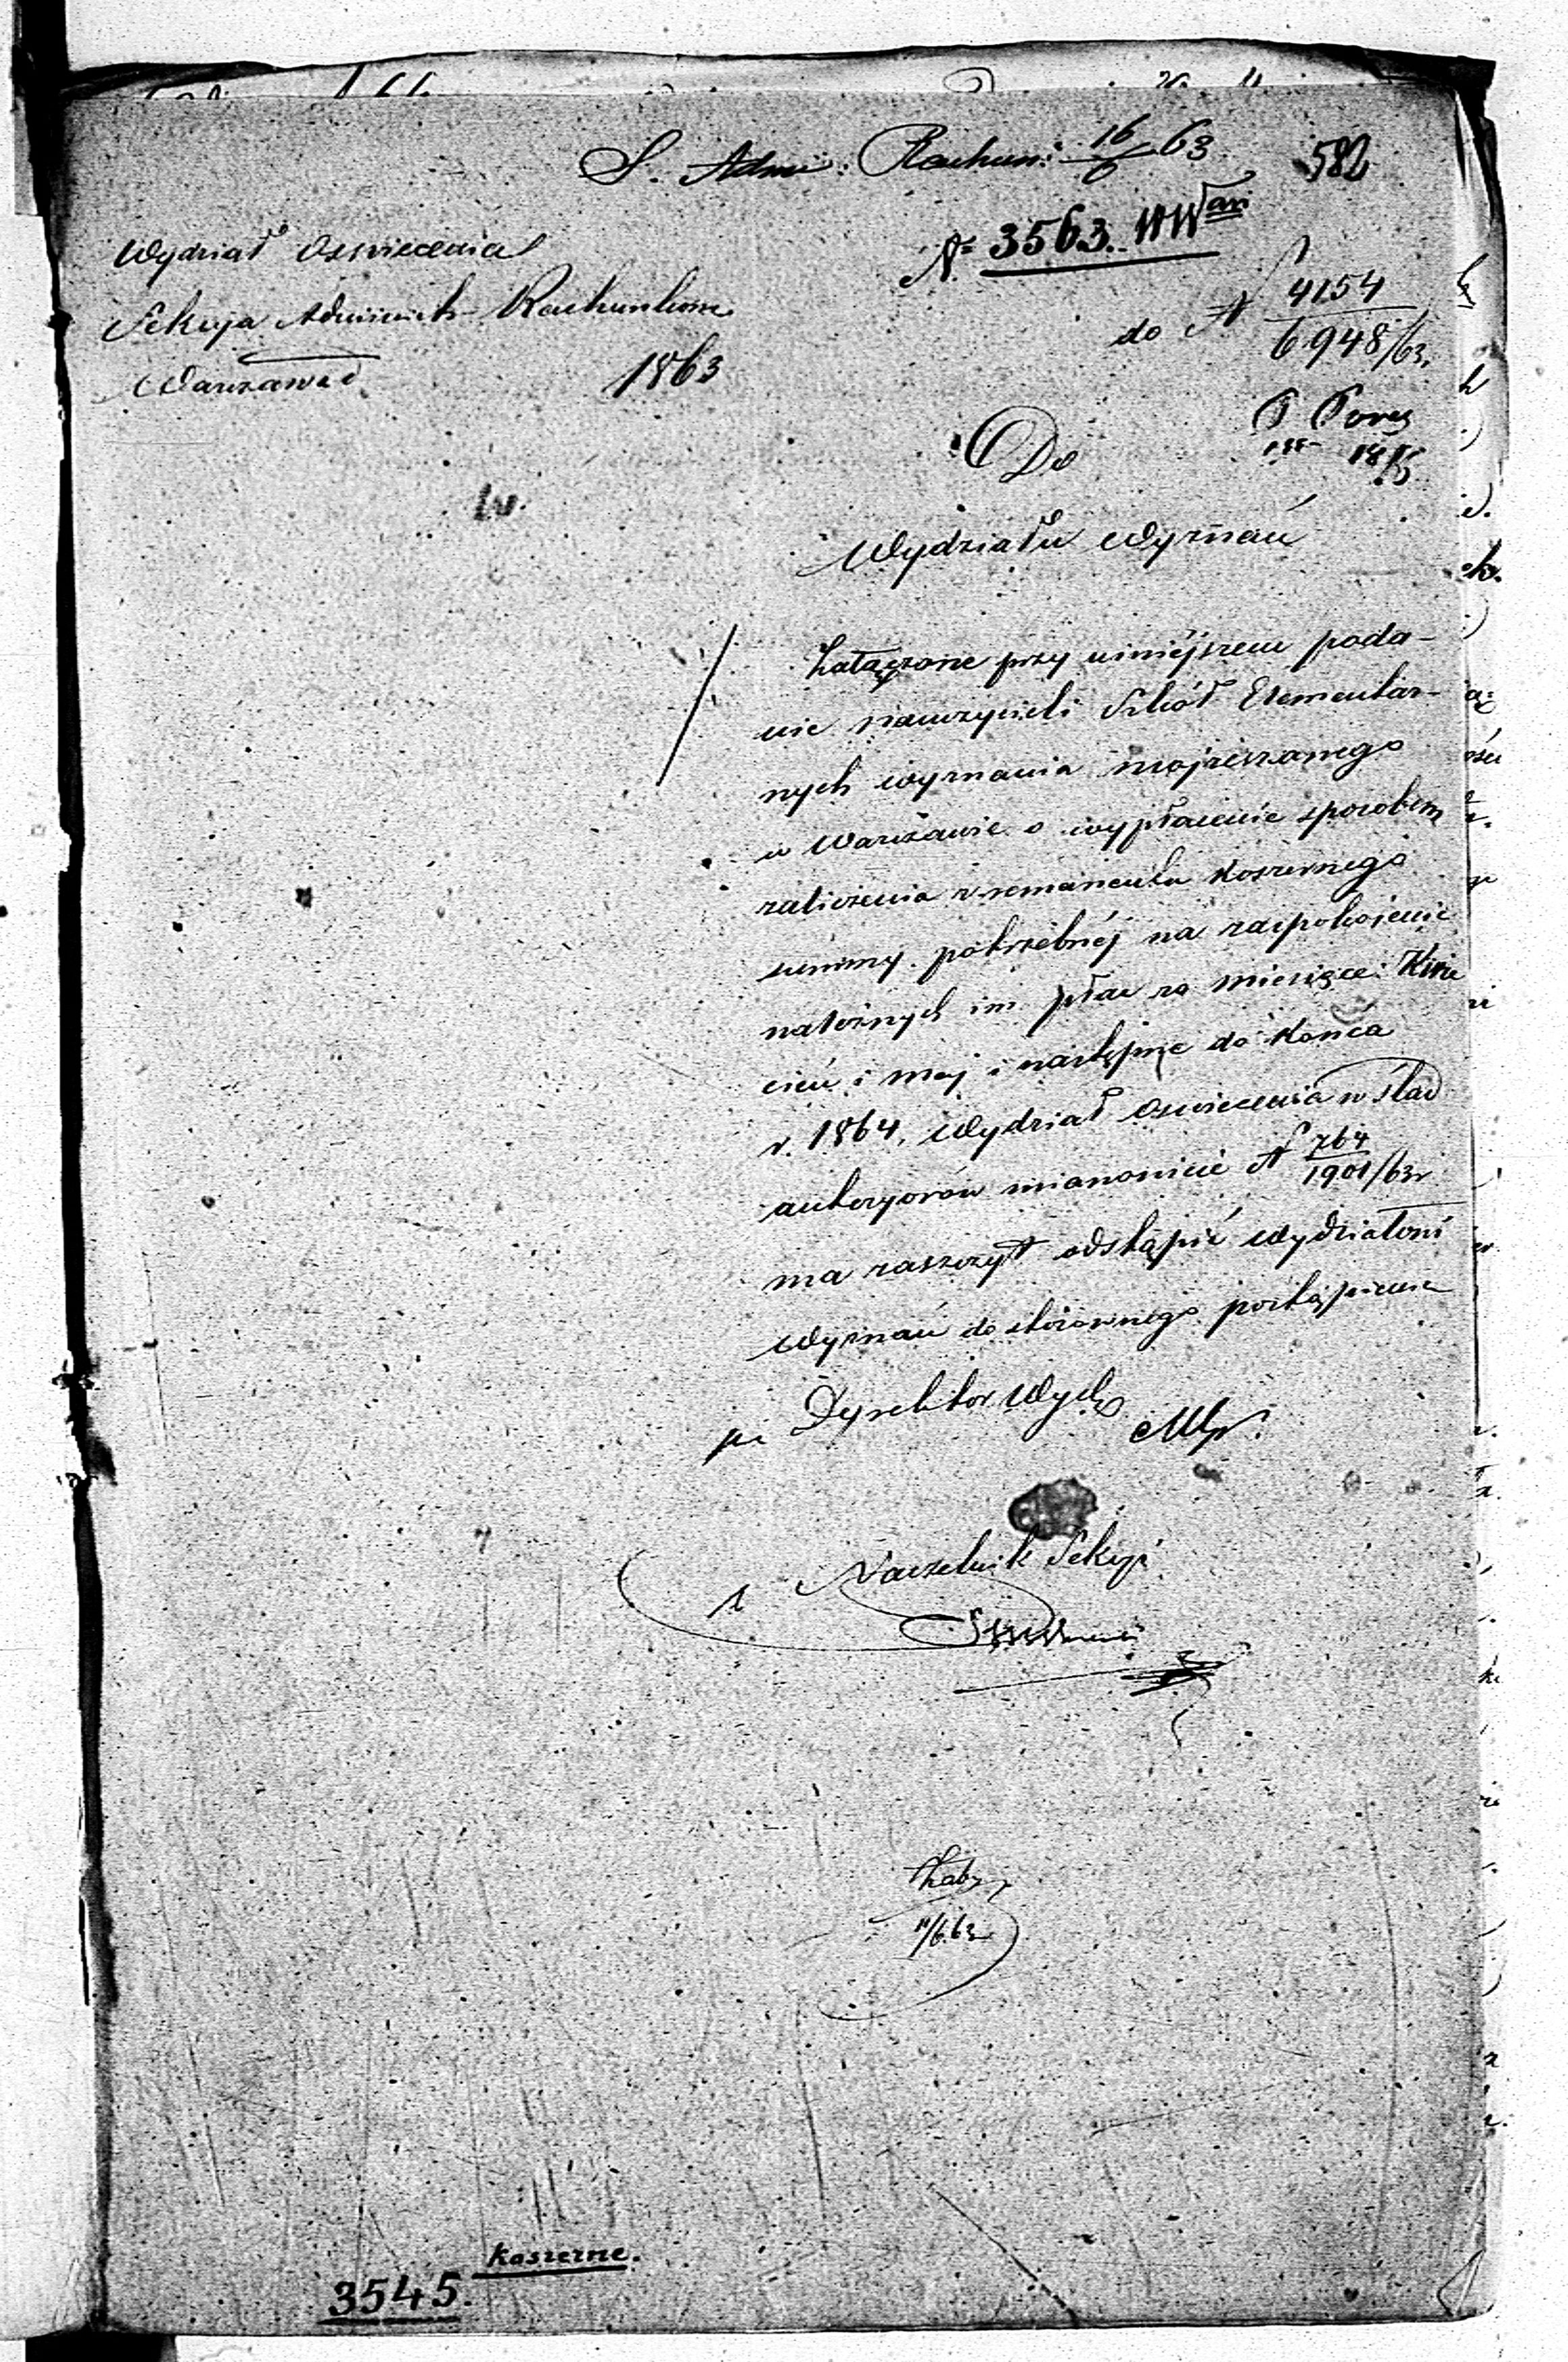 S. Adm: Rachun: 16/6 63
582
Nº 3563. WWań
Wydział Oswiecenia
Sekcja Administ- Rachunkowa
Warszawa d. 1863
do N 4154/6948/63.
Do
Wydziału Wyznań
Załączone przy niniéjszem poda-
nie nauczycieli Szkół Elementar-
nych wyznania mojżeszowego
w Warszawie o wypłacenie sposobem
zaliczenia z remanentu koszernego
summy potrzebnéj na zaspokojenie
należnych im płac za miesiące: Kwie
cień i maj i następne do końca
r. 1864, Wydział Oswiecenia w ślad
anteryorów mianowicie N 764/1901/63r
ma zaszczyt odstąpić Wydziałowi
Wyznań do stosownego postąpienia
Dyrektor Wydz
Naczelnik Sekcji
11/6.63
koszerne.
3545.